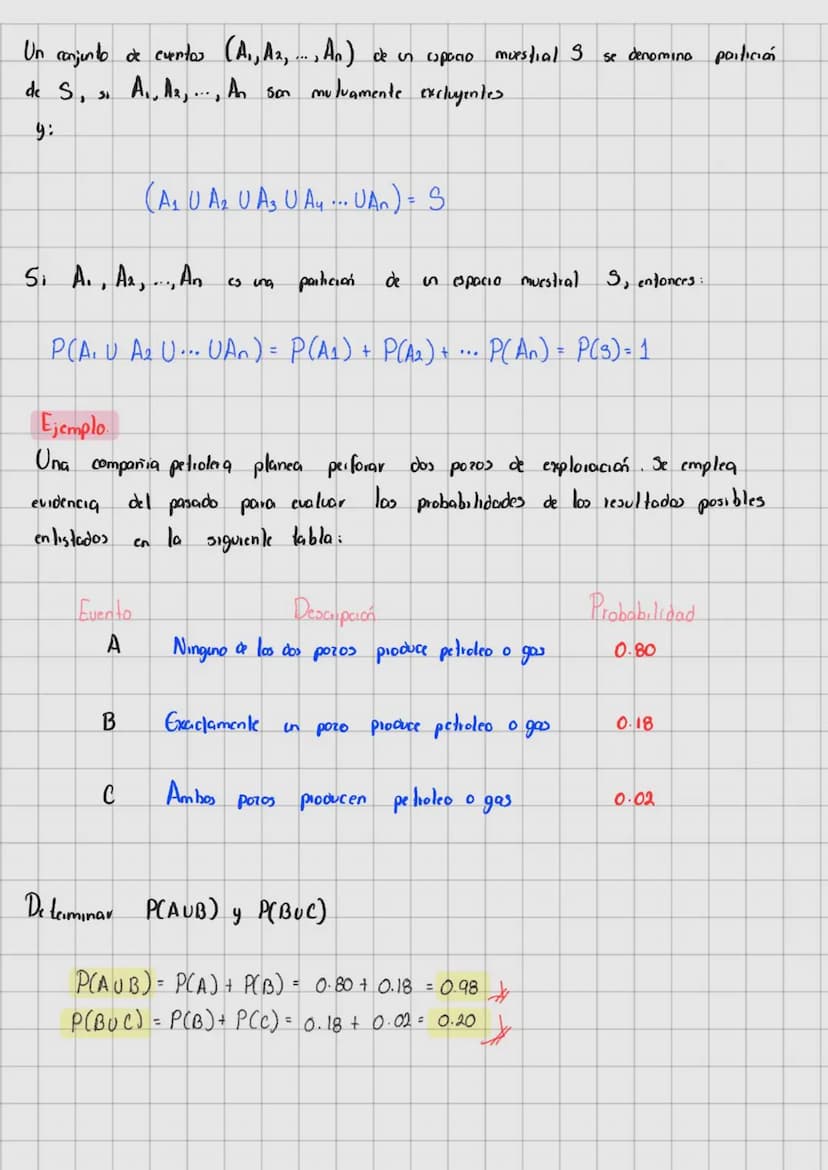 Un conjunto de eventos (A₁, A₂, ..., An) de un espacio muestral S se denomina partición
de S, si A₁, A₂, ..., An son mutuamente excluyentes
y:
(A₁ U A₂ U A₃ U A₄ ... UAn) = S
Si A₁, A₂, ..., An es una partición de un espacio muestral S, entonces:
P(A₁ U A₂ U ... UAn) = P(A1) + P(A₂) + ... P(An) = P(S) = 1
Ejemplo.
Una compañia petrolera planea perforar dos pozos de exploración. Se emplea
evidencia del pasado para evaluar las probabilidades de los resultados posibles
enlistados en la siguiente tabla:
Evento Descripción Probabilidad
A Ninguno de los dos pozos produce petroleo o gas 0.80
B Exactamente un pozo produce petroleo o gas 0.18
C Ambos pozos producen petroleo o gas 0.02
Determinar P(AUB) y P(BUC)
P(AUB) = P(A) + P(B) = 0.80 + 0.18 = 0.98
P(BUC) = P(B) + P(C) = 0.18 + 0.02 = 0.20